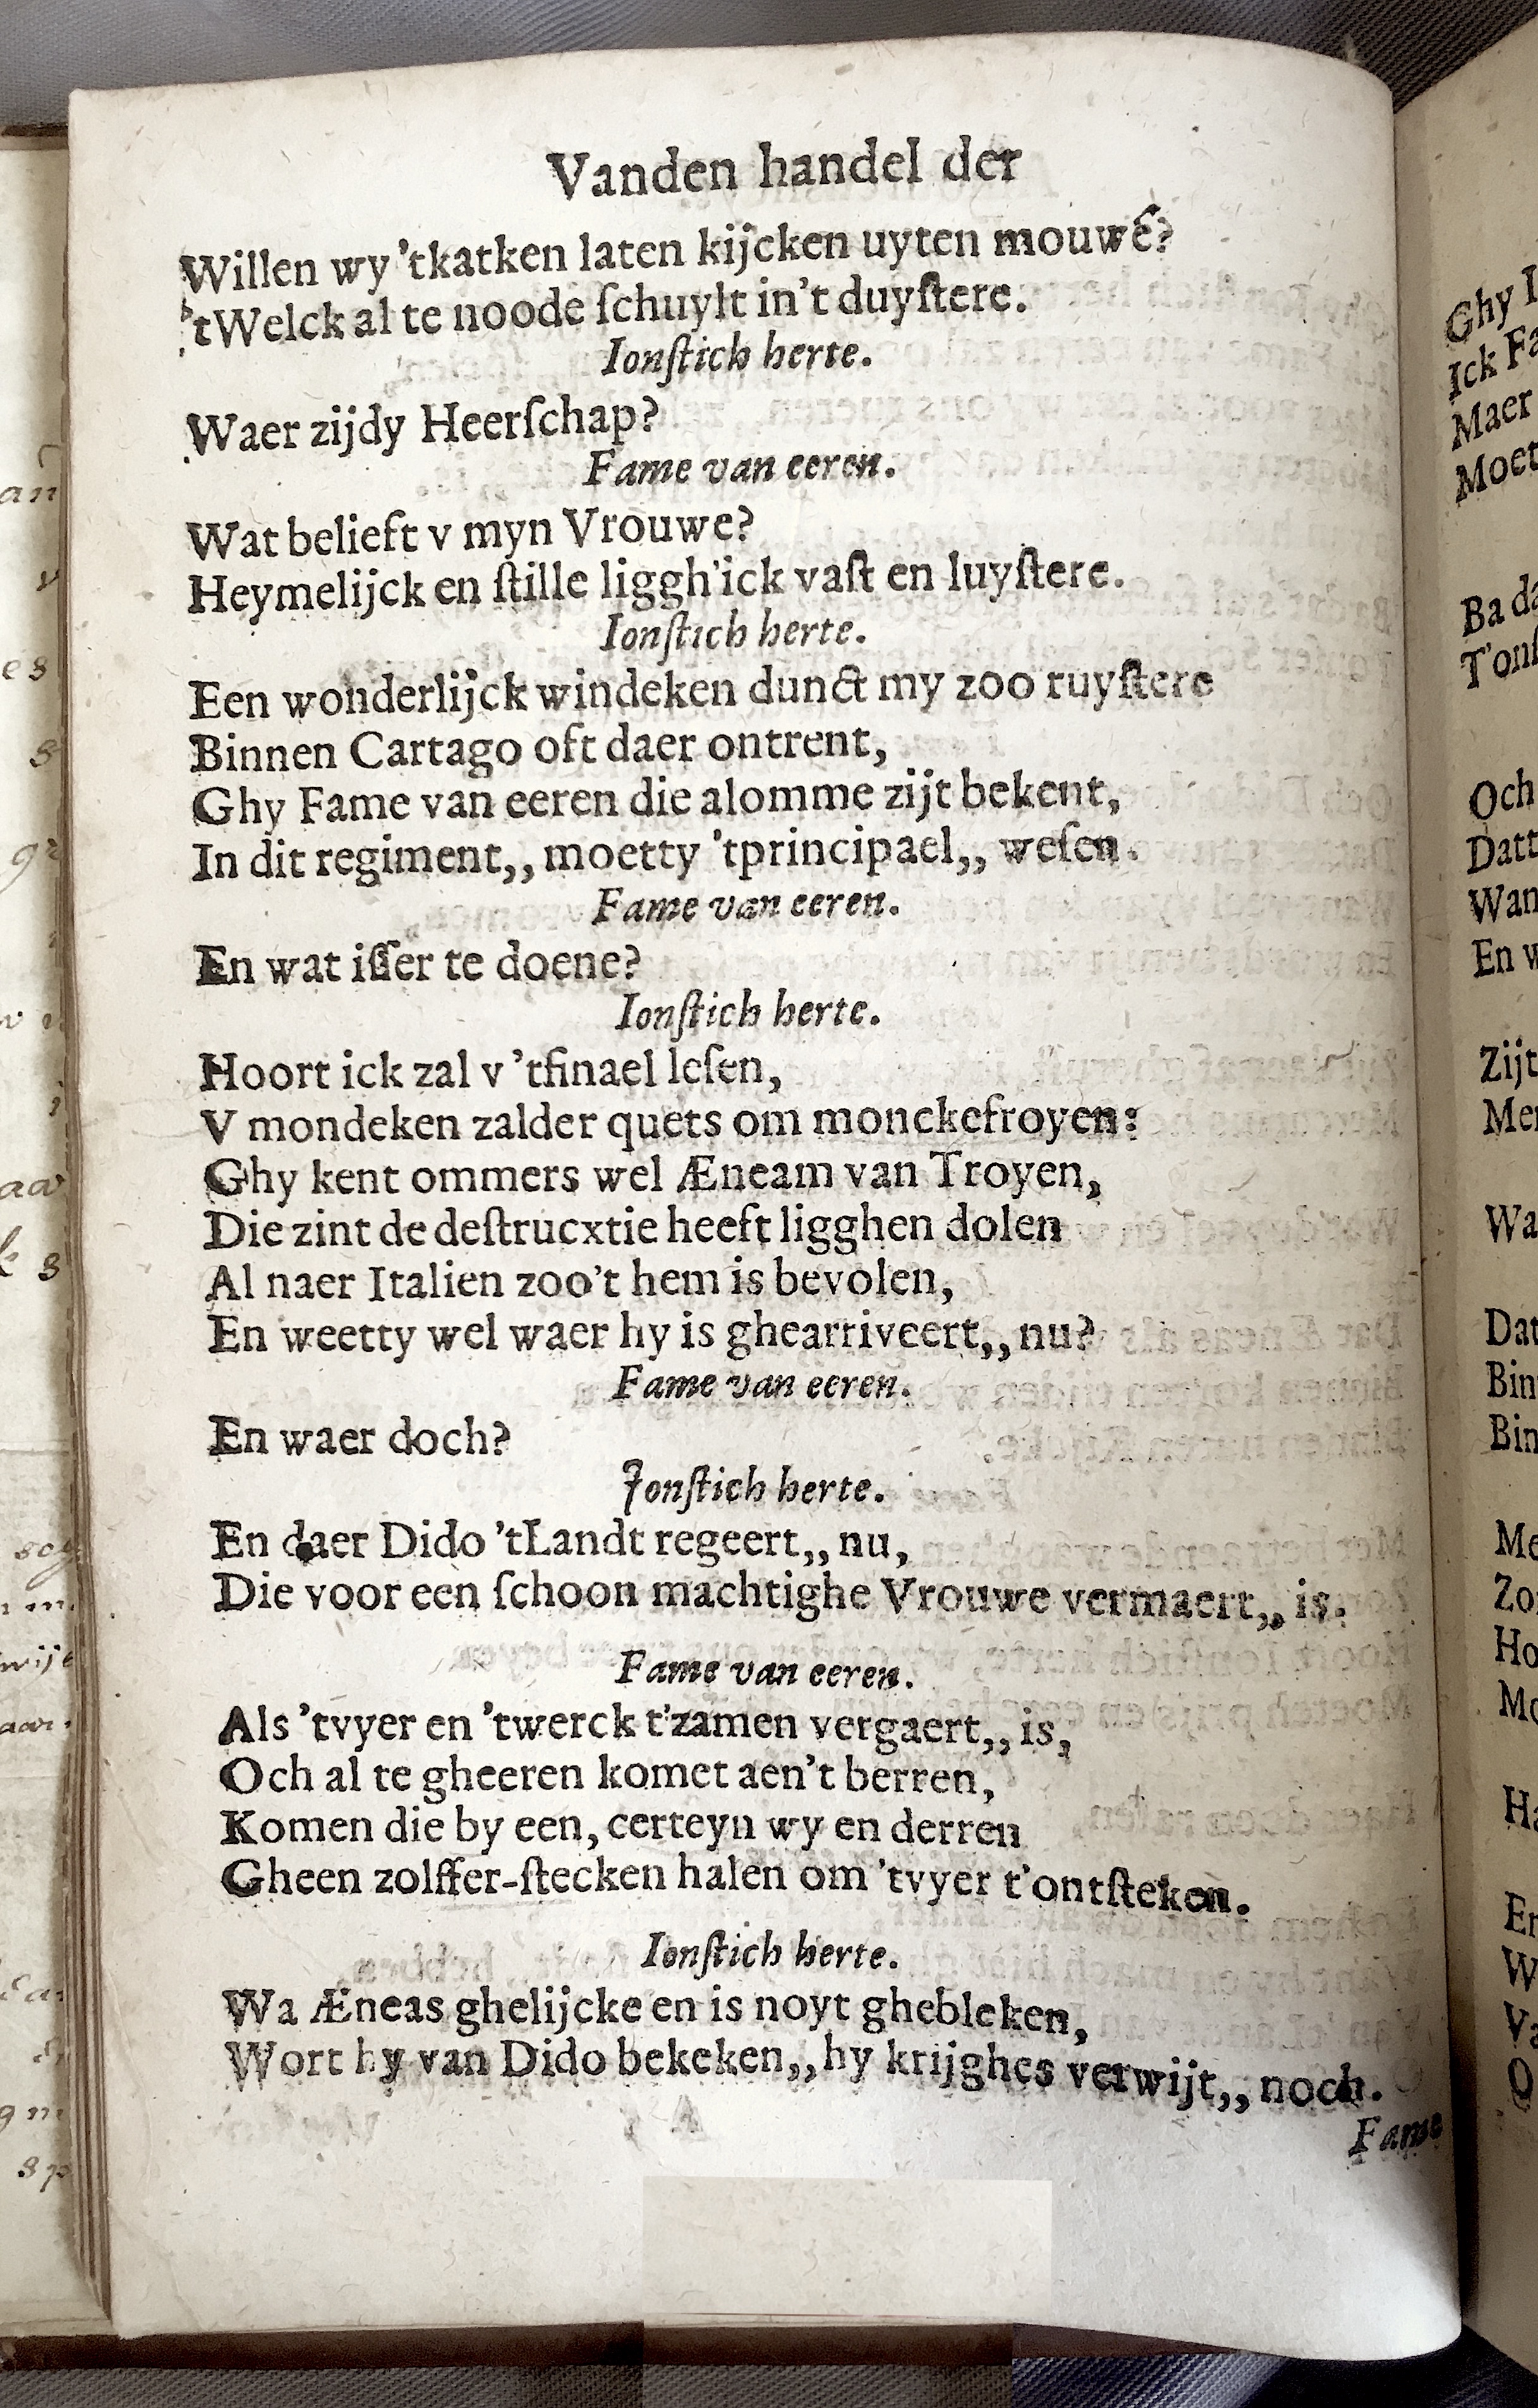 Vanden handel der
Willen wy 'tkatken laten kijcken uyten mouwe?
'tWelck al te noode ſchuylt in't duyſtere.
Ionſtich herte.
Waer zijdy Heerſchap?
Fame van eeren.
Wat belieft v myn Vrouwe?
Heymelijck en ſtille liggh'ick vaſt en luyſtere.
Ionſtich herte.
Een wonderlijck windeken dunct my zoo ruyſtere
Binnen Cartago oft daer ontrent,
Ghy Fame van eeren die alomme zijt bekent,
In dit regiment,, moetty 'tprincipael,, weſen.
Fame van eeren.
En wat iſſer te doene?
Ionſtich herte.
Hoort ick zal v 'tfinael leſen,
V mondeken zalder quets om monckefroyen:
Ghy kent ommers wel Æneam van Troyen,
Die zint de deſtrucxtie heeft ligghen dolen
Al naer Italien zoo't hem is bevolen,
En weetty wel waer hy is ghearriveert,, nu?
Fame van eeren.
En waer doch?
Jonſtich herte.
En daer Dido 'tLandt regeert,, nu,
Die voor een ſchoon machtighe Vrouwe vermaert,, is.
Fame van eeren.
Als 'tvyer en 'twerck t'zamen vergaert,, is,
Och al te gheeren komet aen't berren,
Komen die by een, certeyn wy en derren
Gheen zolffer-ſtecken halen om 'tvyer t'ontſteken.
Ionſtich herte.
Wa Æneas ghelijcke en is noyt ghebleken,
Wort hy van Dido bekeken,, hy krijghes verwijt,, noch.
Fame
Ghy
Ick
Maer
Moet
Ba
Och
Datt
Wan
En
Zijt